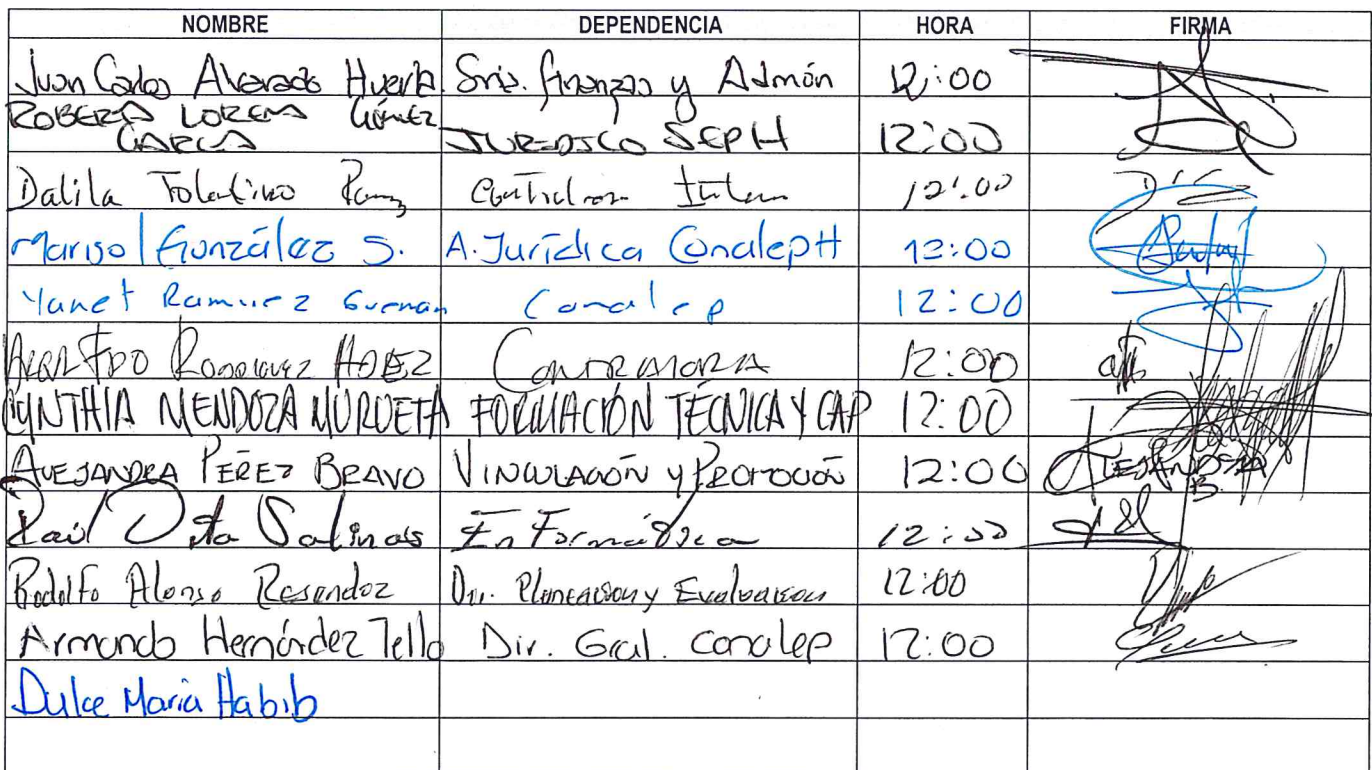 NOMBRE DEPENDENCIA HORA FIRMA
Juan Carlos Alvarado Huerta Sria. finanzas y Admón 12:00
ROBERTA LORENA GÓMEZ
GARCIA JURIDICO SEPH 12:00
Dalila Tolentino 12:00
Marisol González S. A. Jurídica ConalepH 12:00
Yanet Ramirez Guzman Conalep 12:00
12:00
CYNTHIA MENDOZA MURUETA FORMACIÓN TÉCNICA Y CAP 12:00
ALEJANDRA PÉREZ BRAVO VINCULACIÓN y PROMOCIÓN 12:00
Raúl Salinas Informática 12:00
Rodolfo Alonso Resendoz Dir. Planeacion y Evaluacion 12:00
Armando Hernández Tello Dir. Gral. conalep 12:00
Dulce María Habib